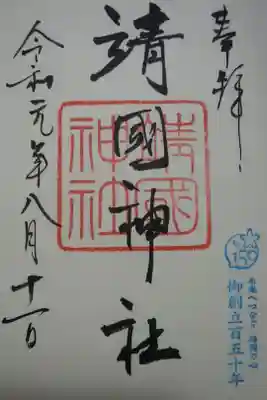 奉拝
靖國神社
靖國神社
令和元年八月十一日
150
御創立百五十年